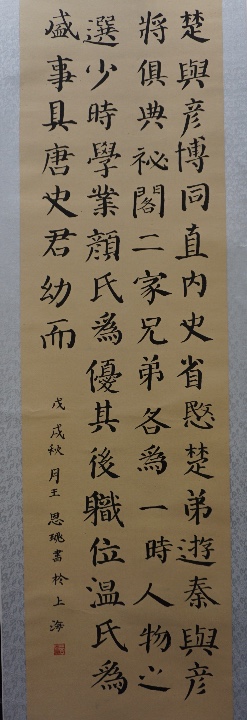 楚與彦博同直内史省愍楚弟遊秦與彦
將俱典祕閣二家兄弟各為一時人物之
選少時學業顔氏為優其後職位温氏為
盛事具唐史君幼而
戊戌秋月王思書於上海